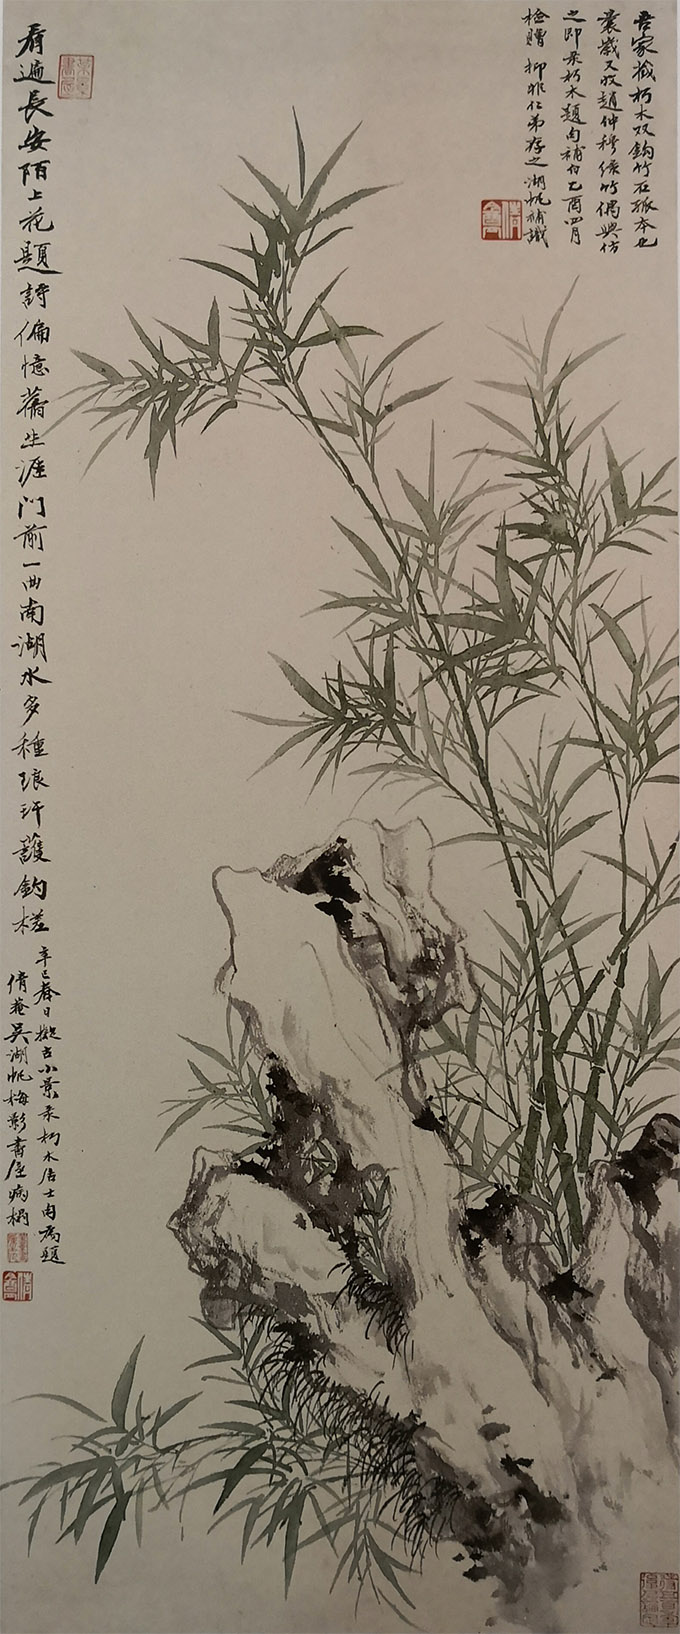 吾家藏朽木双鈎竹石孤本也
曩歲又收趙仲穆疾竹偶興仿
之即录朽木題句補白乙酉四月
檢贈 柳非仁弟存之 湖帆補識
看遍長安陌上花題詩偏憶舊生涯門前一曲南湖水多種琅玕護釣槎
辛巳春日擬古小景录朽木居士句為題
倩菴吴湖帆梅影書屋病榻